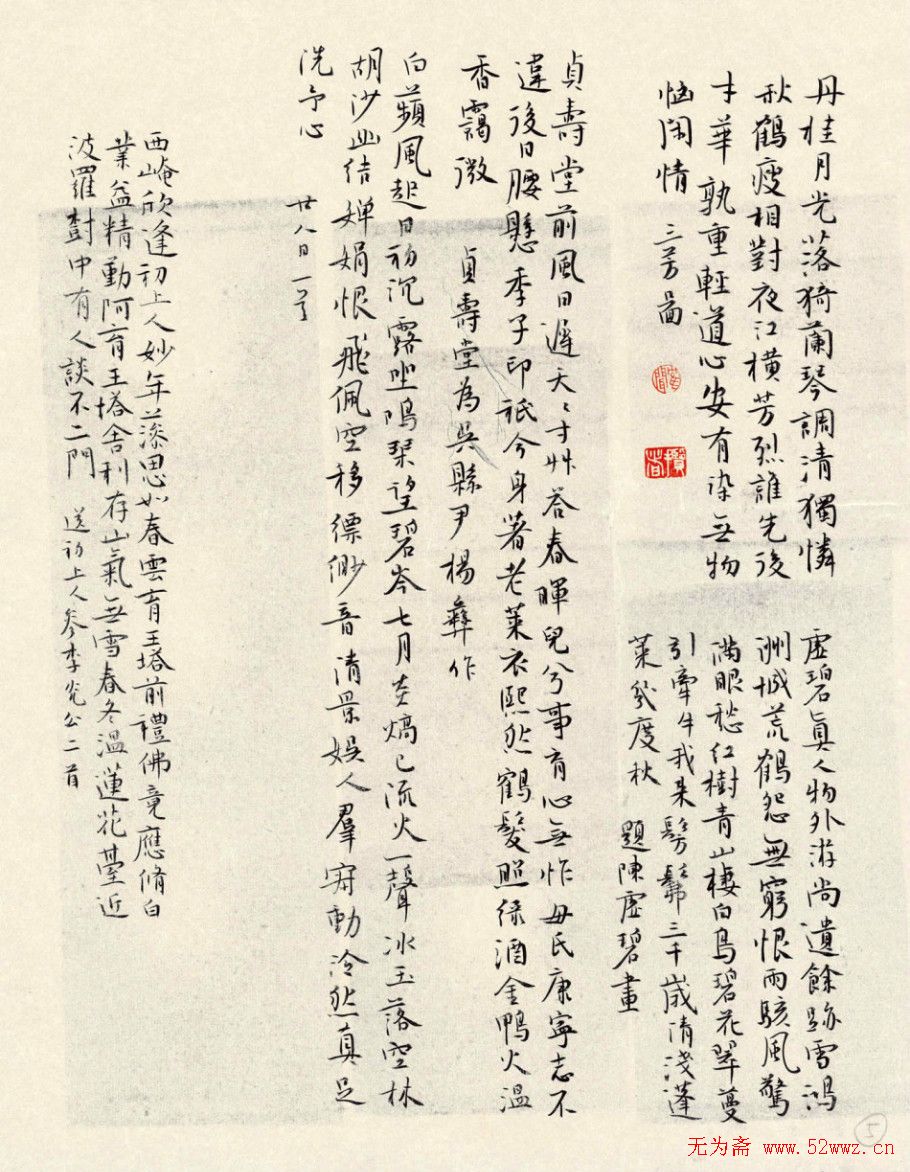 丹桂月光落猗蘭琴調清獨憐
秋鶴瘦相對夜江橫芳烈誰先後
才華孰重輕道心安有染無物
惱閑情 三芳圖
虛碧真人物外游尚遺餘跡雪鴻
洲城荒鶴怨無窮恨雨駭風驚
滿眼愁紅樹青山棲白鳥碧花翠蔓
引牽牛我來髣髴三千歲清淺蓬
萊幾度秋 題陳虛碧畫
貞壽堂前風日遲天〻寸艸答春暉兒兮事育心無怍母氏康寧志不
違後日腰懸季子印祇今身著老萊衣熙然鶴髮照綠酒金鴨火溫
香靄微 貞壽堂為吳縣尹楊彝作
白蘋風起日初沉露坐鳴琴望碧岑七月炎熇已流火一聲冰玉落空林
胡沙幽結嬋娟恨飛佩空移縹緲音清景娛人羣宿動泠然真足
洗予心
廿八日一首
西崦欣逢初上人妙年藻思如春雲育王塔前禮佛竟應脩白
業益精勤阿育王塔舍利存山氣無雪春冬溫蓮花臺近
波羅樹中有人談不二門 送初上人參李光公二首
5
无为斋 www.52wwz.cn